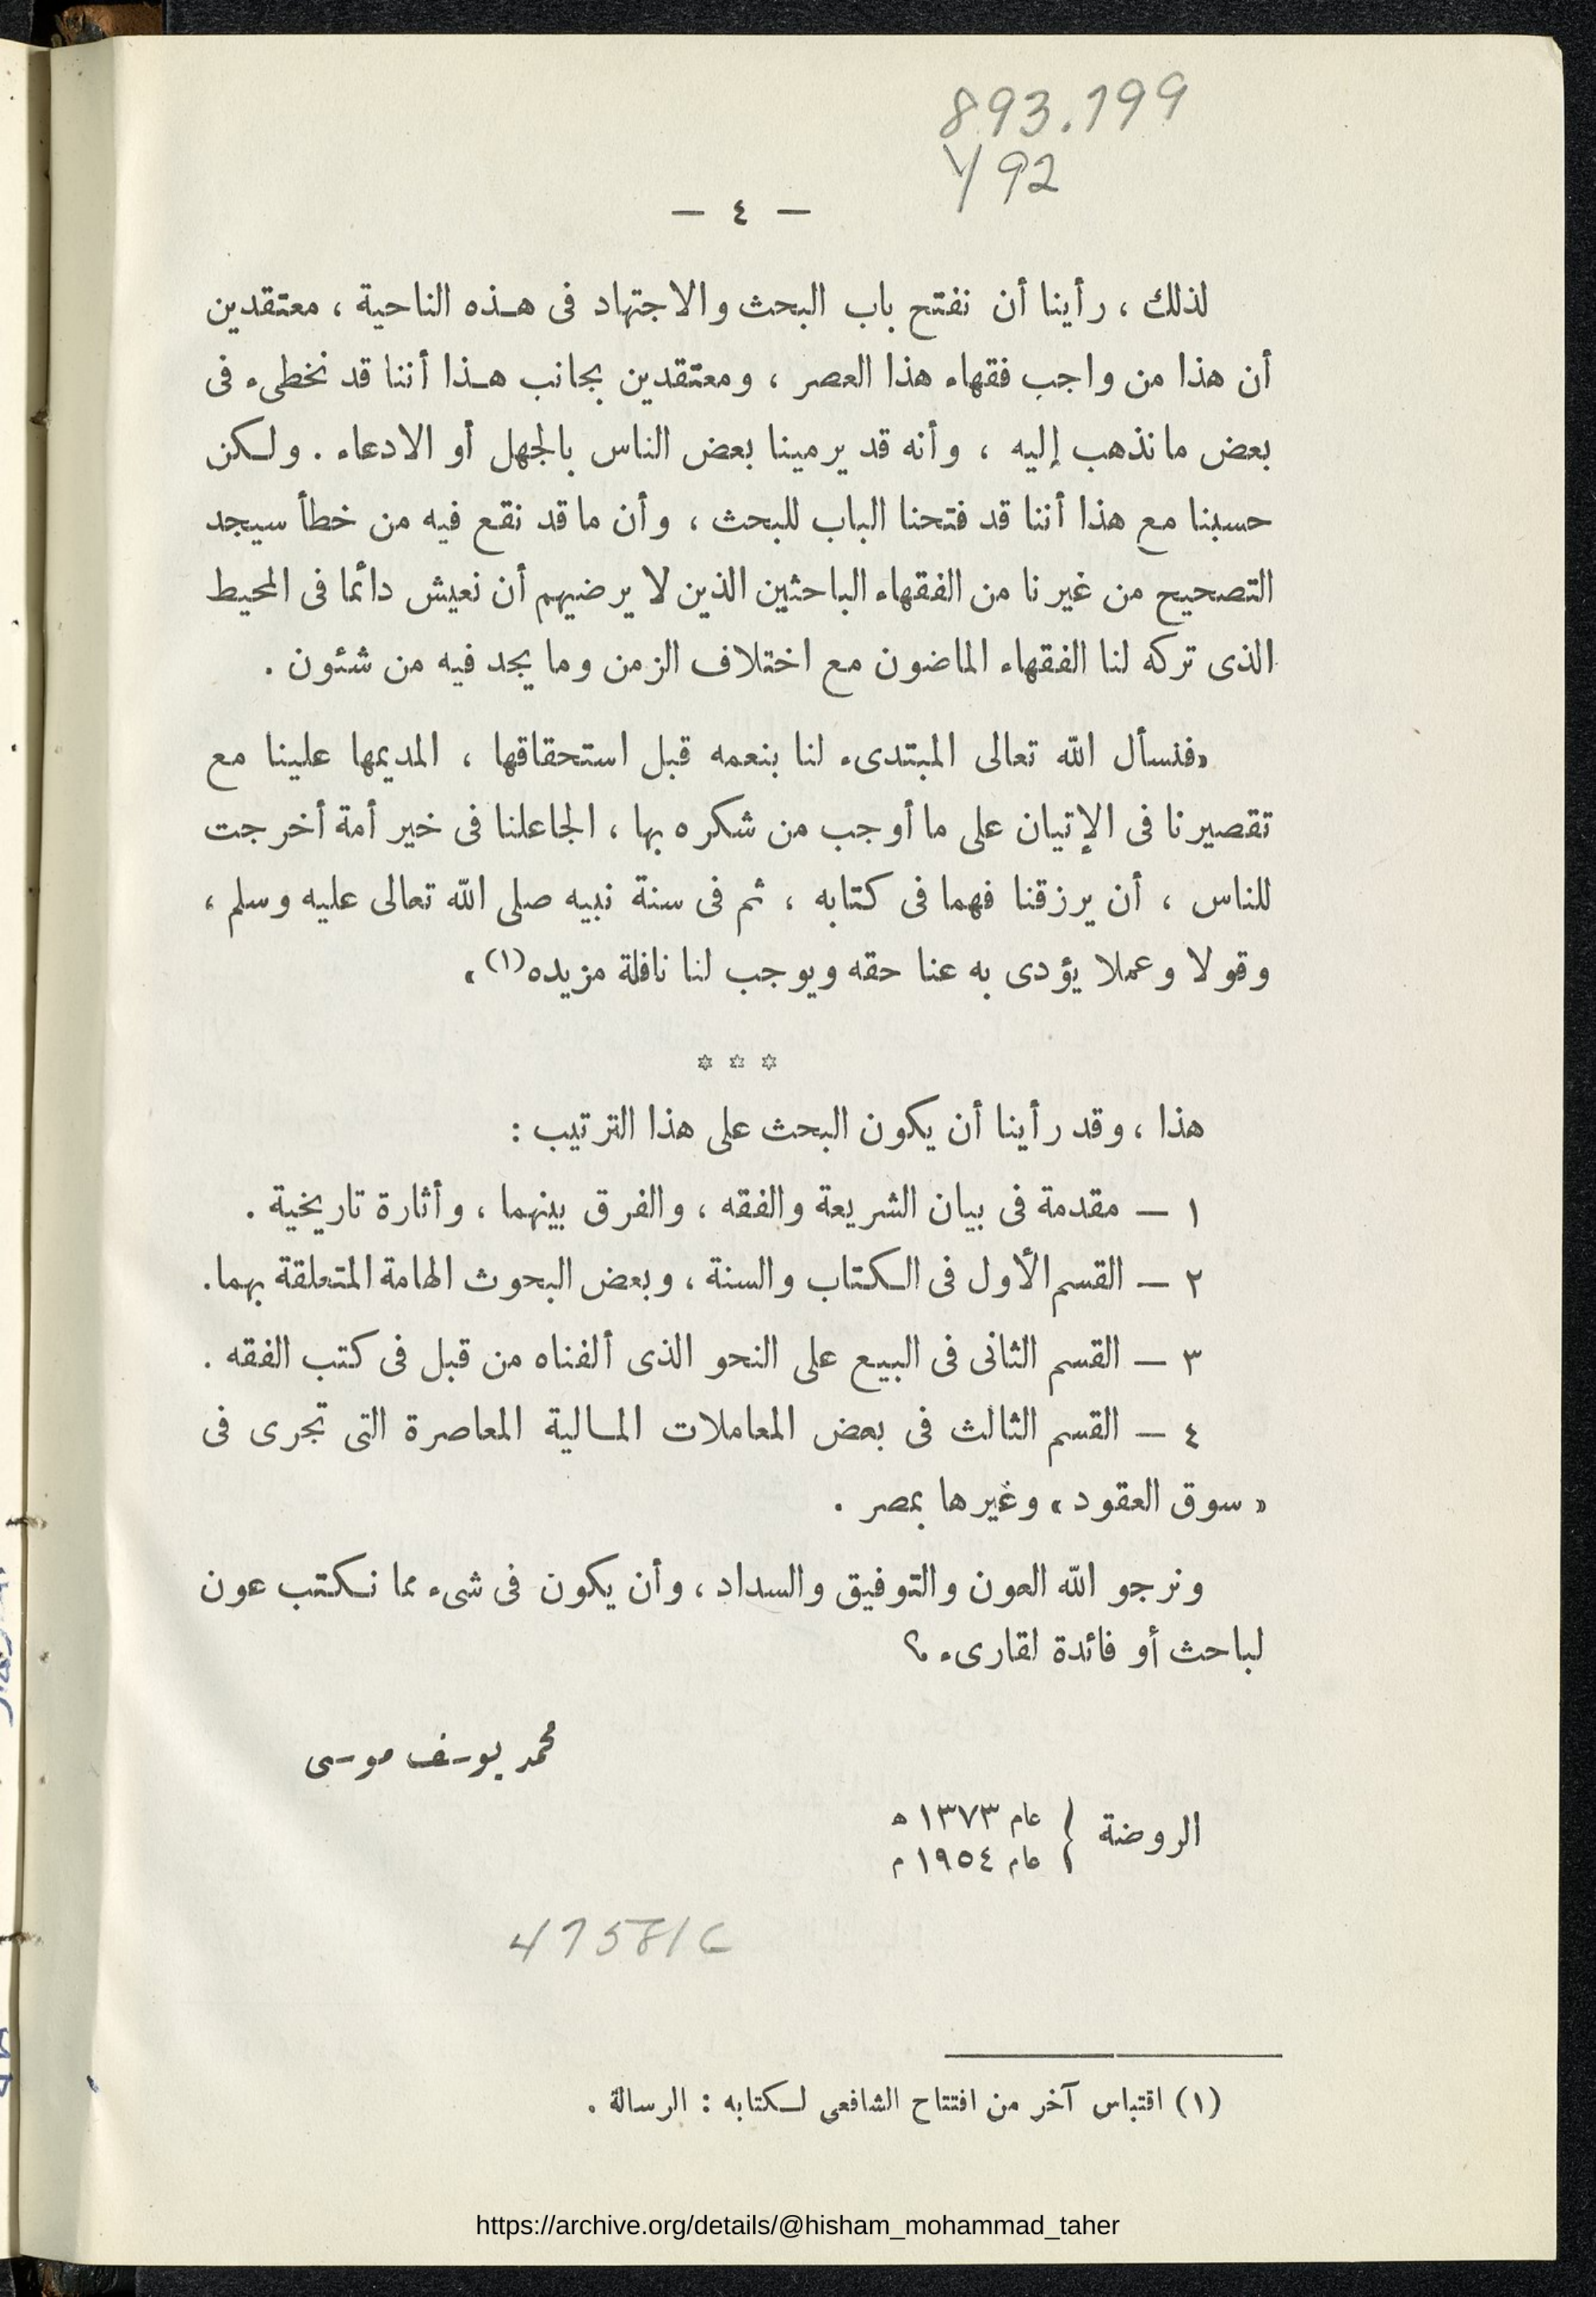 893.199
Y92
— ٤ —
لذلك ، رأينا أن نفتح باب البحث والاجتهاد فى هـذه الناحية ، معتقدين
أن هذا من واجب فقهاء هذا العصر ، ومعتقدين بجانب هـذا أننا قد نخطىء فى
بعض ما نذهب إليه ، وأنه قد يرمينا بعض الناس بالجهل أو الادعاء . ولـكن
حسبنا مع هذا أننا قد فتحنا الباب للبحث ، وأن ما قد نقع فيه من خطأ سيجد
التصحيح من غيرنا من الفقهاء الباحثين الذين لا يرضيهم أن نعيش دائما فى المحيط
الذى تركه لنا الفقهاء الماضون مع اختلاف الزمن وما يجد فيه من شئون .
«فنسأل الله تعالى المبتدىء لنا بنعمه قبل استحقاقها ، المديمها علينا مع
تقصيرنا فى الإتيان على ما أوجب من شكره بها ، الجاعلنا فى خير أمة أخرجت
للناس ، أن يرزقنا فهما فى كتابه ، ثم فى سنة نبيه صلى الله تعالى عليه وسلم ،
وقولا وعملا يؤدى به عنا حقه ويوجب لنا نافلة مزيده(١)»
* * *
هذا ، وقد رأينا أن يكون البحث على هذا الترتيب :
١ — مقدمة فى بيان الشريعة والفقه ، والفرق بينهما ، وأثارة تاريخية .
٢ — القسم الأول فى الـكتاب والسنة ، وبعض البحوث الهامة المتعلقة بهما.
٣ — القسم الثانى فى البيع على النحو الذى ألفناه من قبل فى كتب الفقه .
٤ — القسم الثالث فى بعض المعاملات المـالية المعاصرة التى تجرى فى
« سوق العقود » وغيرها بمصر .
ونرجو الله العون والتوفيق والسداد ، وأن يكون فى شىء مما نـكتب عون
لباحث أو فائدة لقارىء ؟
محمد يوسف موسى
الروضة { عام ١٣٧٣ ه
عام ١٩٥٤ م
47581C
(١) اقتباس آخر من افتتاح الشافعى لـكتابه : الرسالة .
https://archive.org/details/@hisham_mohammad_taher